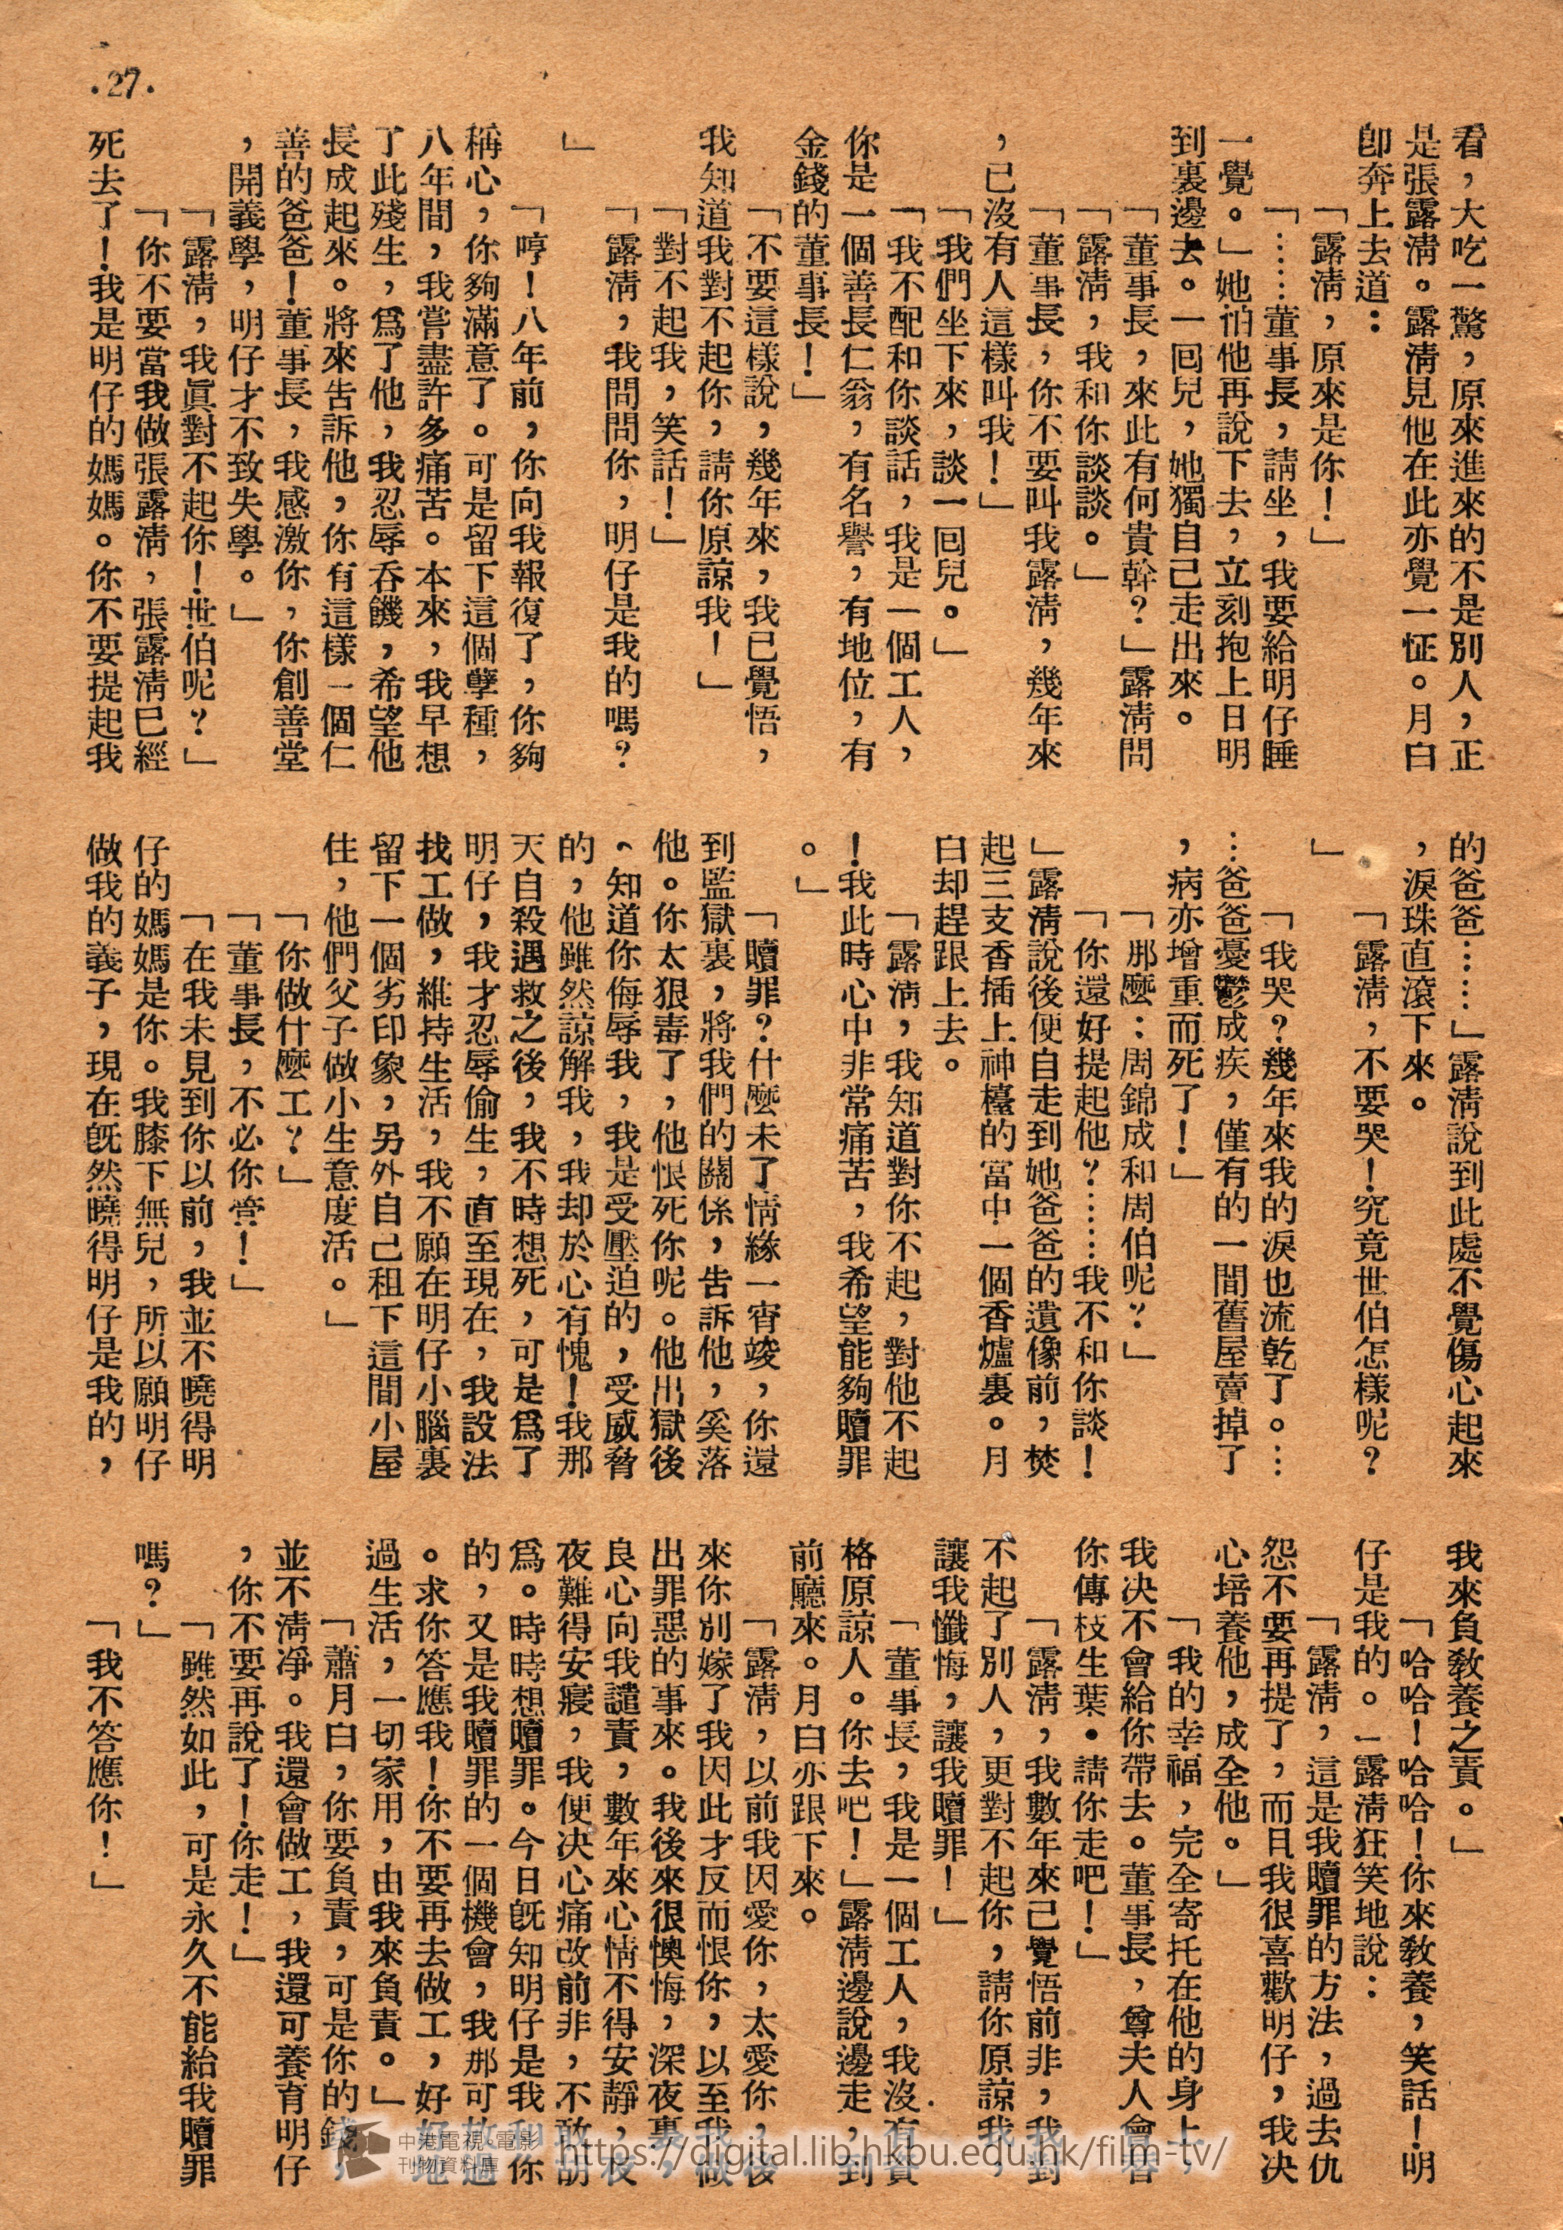 ·27·
看，大吃一驚，原來進來的不是別人，正
是張露淸。露淸見他在此亦覺一怔。月白
卽奔上去道：
「露淸，原來是你！」
「……董事長，請坐，我要給明仔睡
一覺。」她怕他再說下去，立刻抱上日明
到裏邊去。一囘兒，她獨自己走出來。
「董事長，來此有何貴幹？」露淸問
「露淸，我和你談談。」
「董事長，你不要叫我露淸，幾年來
，已沒有人這樣叫我！」
「我們坐下來，談一囘兒。」
「我不配和你談話，我是一個工人，
你是一個善長仁翁，有名譽，有地位，有
金錢的董事長！」
「不要這樣說，幾年來，我已覺悟，
我知道我對不起你，請你原諒我！」
「對不起我，笑話！」
「露淸，我問問你，明仔是我的嗎？
」
「哼！八年前，你向我報復了，你夠
稱心，你夠滿意了。可是留下這個孽種，
八年間，我嘗盡許多痛苦。本來，我早想
了此殘生，爲了他，我忍辱吞饑，希望他
長成起來。將來告訴他，你有這樣一個仁
善的爸爸！董事長，我感激你，你創善堂
，開義學，明仔才不致失學。」
「露淸，我眞對不起你！世伯呢？」
「你不要當我做張露淸，張露淸已經
死去了！我是明仔的媽媽。你不要提起我
的爸爸……」露淸說到此處不覺傷心起來
，淚珠直滾下來。
「露淸，不要哭！究竟世伯怎樣呢？
」
「我哭？幾年來我的淚也流乾了。…
…爸爸憂鬱成疾，僅有的一間舊屋賣掉了
，病亦增重而死了！」
「那麼：周錦成和周伯呢？」
「你還好提起他？……我不和你談！
」露淸說後便自走到她爸爸的遺像前，焚
起三支香插上神檯的當中一個香爐裏。月
白却趕跟上去。
「露淸，我知道對你不起，對他不起
！我此時心中非常痛苦，我希望能夠贖罪
。」
「贖罪？什麼未了情緣一宵竣，你還
到監獄裏，將我們的關係，告訴他，奚落
他。你太狠毒了，他恨死你呢。他出獄後
、知道你侮辱我，我是受壓迫的，受威脅
的，他雖然諒解我，我却於心有愧！我那
天自殺遇救之後，我不時想死，可是爲了
明仔，我才忍辱偷生，直至現在，我設法
找工做，維持生活，我不願在明仔小腦裏
留下一個劣印象，另外自己租下這間小屋
住，他們父子做小生意度活。」
「你做什麼工？」
「董事長，不必你管！」
「在我未見到你以前，我並不曉得明
仔的媽媽是你。我膝下無兒，所以願明仔
做我的義子，現在旣然曉得明仔是我的，
我來負敎養之責。」
「哈哈！哈哈！你來敎養，笑話！明
仔是我的。」露淸狂笑地說：
「露淸，這是我贖罪的方法，過去仇
怨不要再提了，而且我很喜歡明仔，我决
心培養他，成全他。」
「我的幸福，完全寄托在他的身上，
我决不會給你帶去。董事長，尊夫人會替
你傳枝生葉。請你走吧！」
「露淸，我數年來己覺悟前非，我對
不起了別人，更對不起你，請你原諒我，
讓我懺悔，讓我贖罪！」
「董事長，我是一個工人，我沒有資
格原諒人。你去吧！」露淸邊說邊走，到
前廳來。月白亦跟下來。
「露淸，以前我因愛你，太愛你，後
來你別嫁了我因此才反而恨你，以至我做
出罪惡的事來。我後來很懊悔，深夜裏，
良心向我譴責，數年來心情不得安靜，夜
夜難得安寢，我便决心痛改前非，不敢胡
爲。時時想贖罪。今日旣知明仔是我和你
的，又是我贖罪的一個機會，我那可放過
。求你答應我！你不要再去做工，好好地
過生活，一切家用，由我來負責。」
「蕭月白，你要負責，可是你的錢，
並不淸凈。我還會做工，我還可養育明仔
，你不要再說了！你走！」
「雖然如此，可是永久不能給我贖罪
嗎？」
「我不答應你！」
中港電視·電影
刊物資料庫
https://digital.lib.hkbu.edu.hk/film-tv/